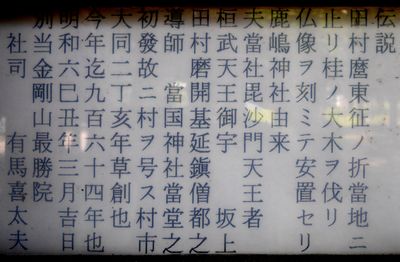 伝説
田村麿東征ノ折當地ニ
正リ桂ノ大木ヲ伐リ
仏像ヲ刻ミテ安置セリ
鹿嶋神社由来
夫當社毘沙門天王者
桓武天王御宇　坂上
田村磨開基延鎭僧都之
導師　當国神社當堂之
初發故ニ村ヲ号ス村市
大同二丁亥年草創也
今年迄九百六十四年也
明和六己丑年三月吉日
別当金剛山最勝院
社司　有馬喜太夫